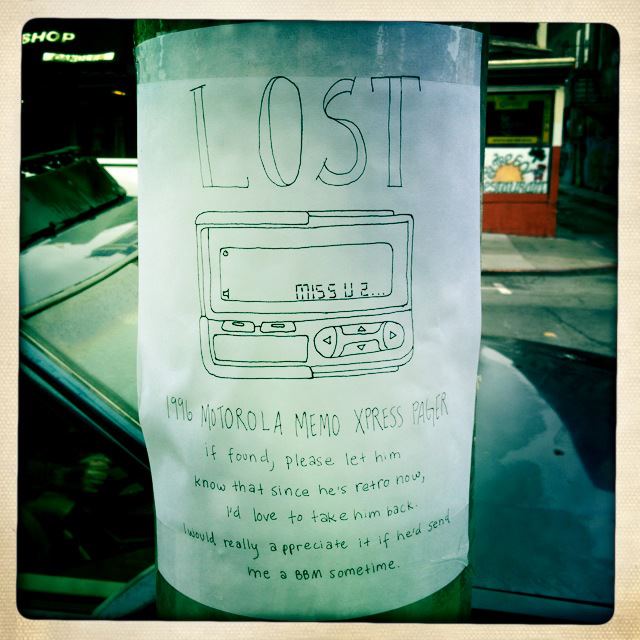 SHOP
LOST
MISS U 2...
1996 MOTOROLA MEMO XPRESS PAGER
if found, please let him
know that since he's retro now,
I'd love to take him back.
I would really appreciate it if he'd send
me a BBM sometime.